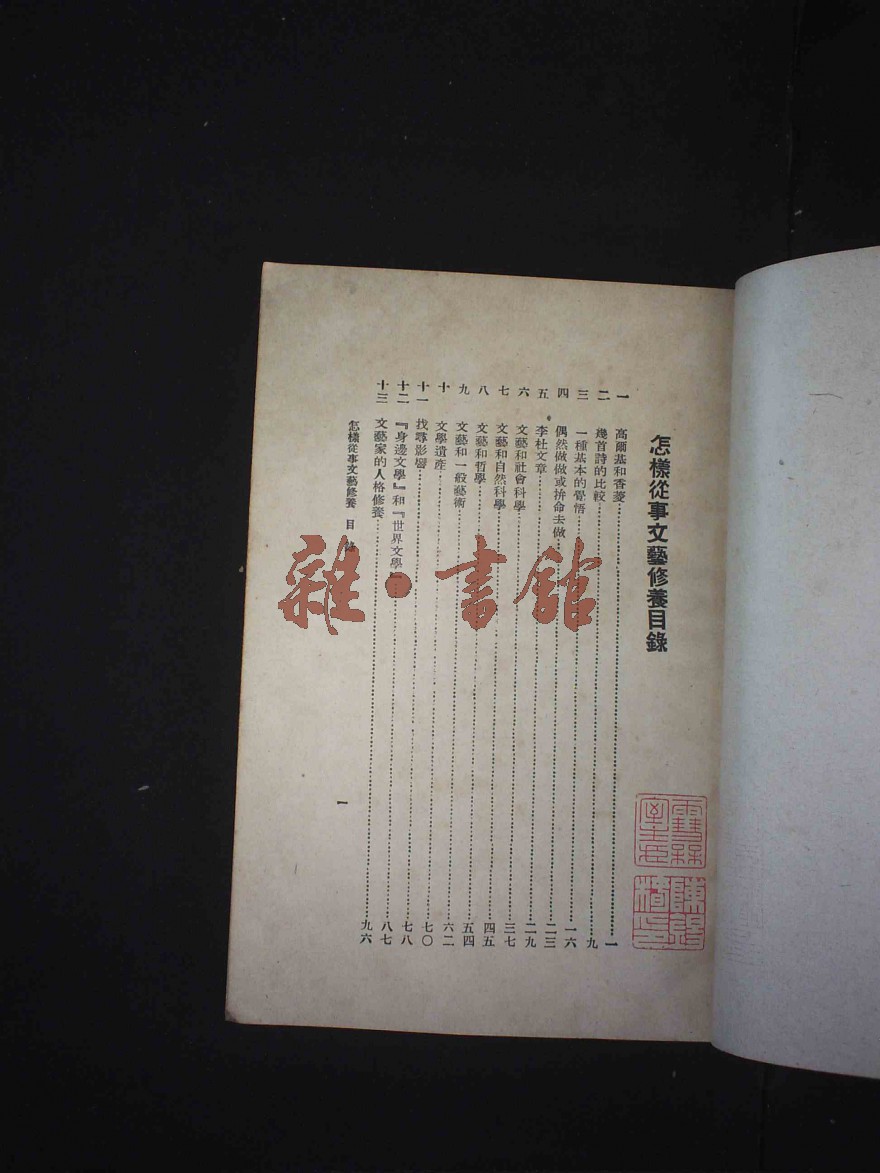 怎樣從事文藝修養目錄
一 高爾基和香菱……一
二 幾首詩的比較……九
三 一種基本的覺悟……一六
四 偶然做做或拚命去做……二三
五 李杜文章……二九
六 文藝和社會科學……三七
七 文藝和自然科學……四五
八 文藝和哲學……五四
九 文藝和一般藝術……六二
十 文學遺產……七〇
十一 找尋影響……七八
十二 『身邊文學』和『世界文學』……八七
十三 文藝家的人格修養……九六
怎樣從事文藝修養 目錄
一
雜·書館